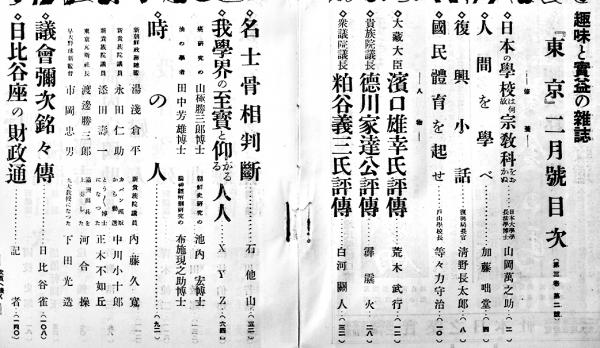 趣味と實益の雜誌
『東京』二月號目次
(第三卷 第二號)
―修養―
◇日本の學校は何故宗教科をおかぬ 日本大學學長法學博士 山岡萬之助…(二)
◇人間を學べ 加藤咄堂…(四)
◇復興小話 復興局長官 清野長太郎…(八)
◇國民體育を起せ 戸山學校長 等々力守治…(一〇)
―人物―
◇大藏大臣 濱口雄幸氏評傳 荒木武行…(一二)
◇貴族院議長 德川家達公評傳 霹靂火…(二八)
◇衆議院議長 粕谷義三氏評傳 白河闢人…(三二)
◇名士骨相判斷 石他山…(五二)
◇我學界の至寶と仰がる人人 XYZ…(六四)
癌研究の 山極勝三郎博士
朝鮮史研究の 池内宏博士
油の學者 田中芳雄博士
布施現之助博士
◇時の人…(九二)
新朝鮮政務總監 湯淺倉平
新貴族院議員 內藤久寬
新貴族院議員 永田仁助
中川小十郎
新貴族院議員 添田壽一
正木不如丘
東京瓦斯社長 渡邊勝三郎
河合操
早大野球新監督 市岡忠男
九大教授になつた 下田光造
◇議會彌次銘々傳 日比谷雀…(一〇八)
◇日比谷座の財政通 記者…(一四〇)